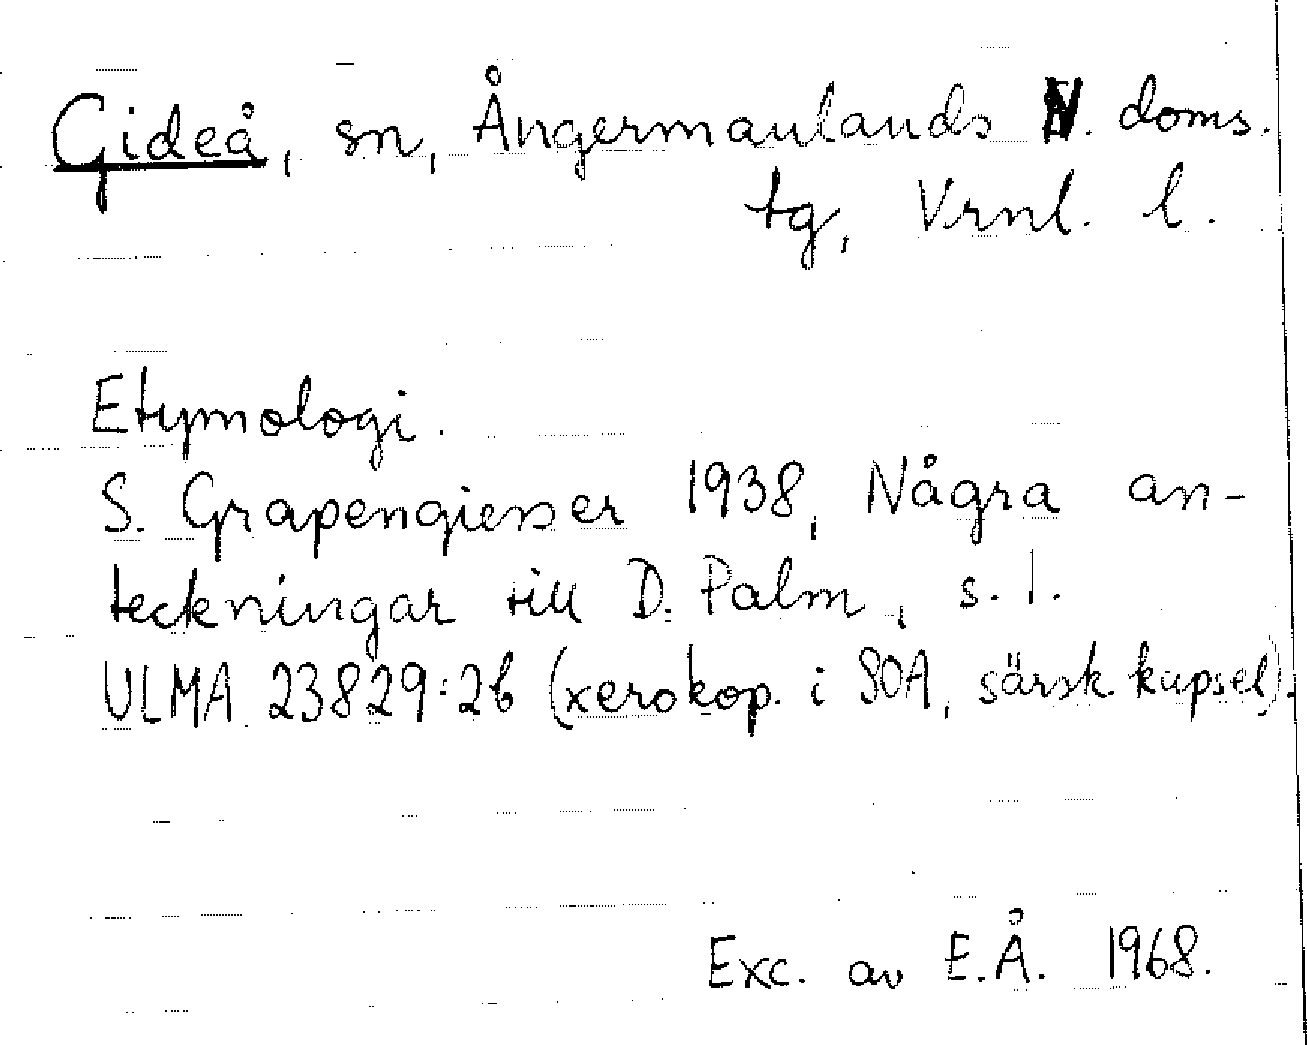 Gideå, sn, Ångermanlands N. doms.
tg, Vrnl. l.
Etymologi.
S. Grapengiesser 1938, Några an-
teckningar till D. Palm, s. 1.
ULMA 23829:2b (xerokop. i SOA, särsk. kapsel).
Exc. av E.Å. 1968.